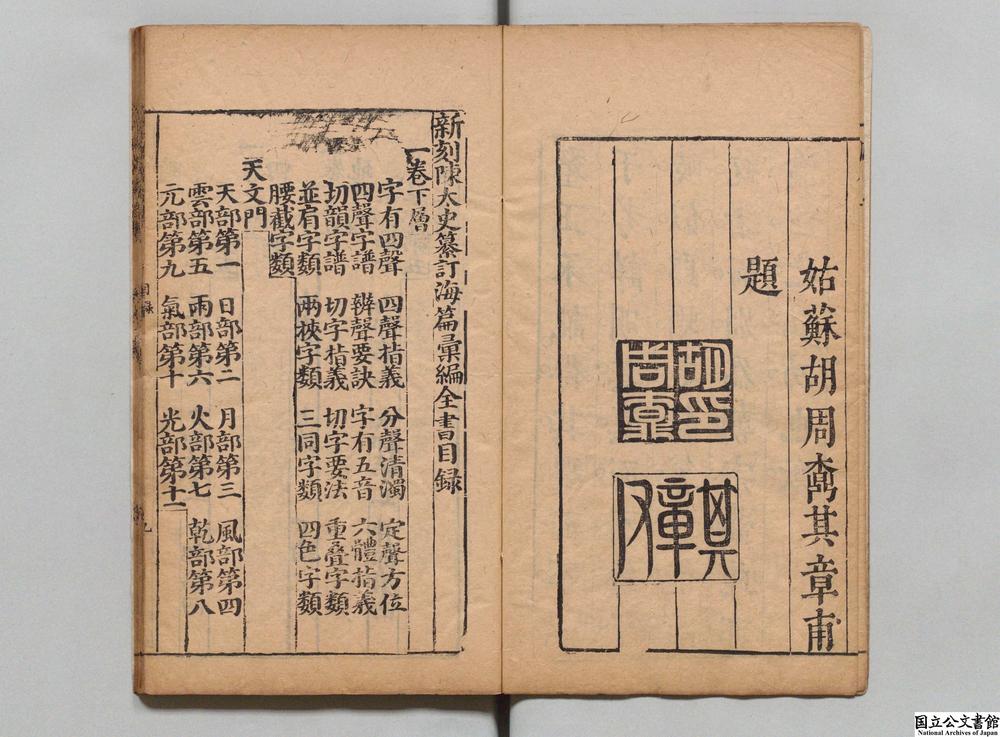 姑蘇胡周鼒其章甫
題
胡印周鼒
其章父
新刻陳太史纂訂海篇彙編全書目録
一卷下層
字有四聲 四聲指義 分聲清濁 定聲方位
四聲字譜 辨聲要訣 字有五音 六體指義
切韻字譜 切字指義 切字要法 重叠字類
並肩字類 兩梜字類 三同字類 四色字類
腰截字類
天文門
天部第一 日部第二 月部第三 風部第四
雲部第五 雨部第六 火部第七 乾部第八
亓部第九 氣部第十 光部第十一
目録
国立公文書館
National Archives of Japan